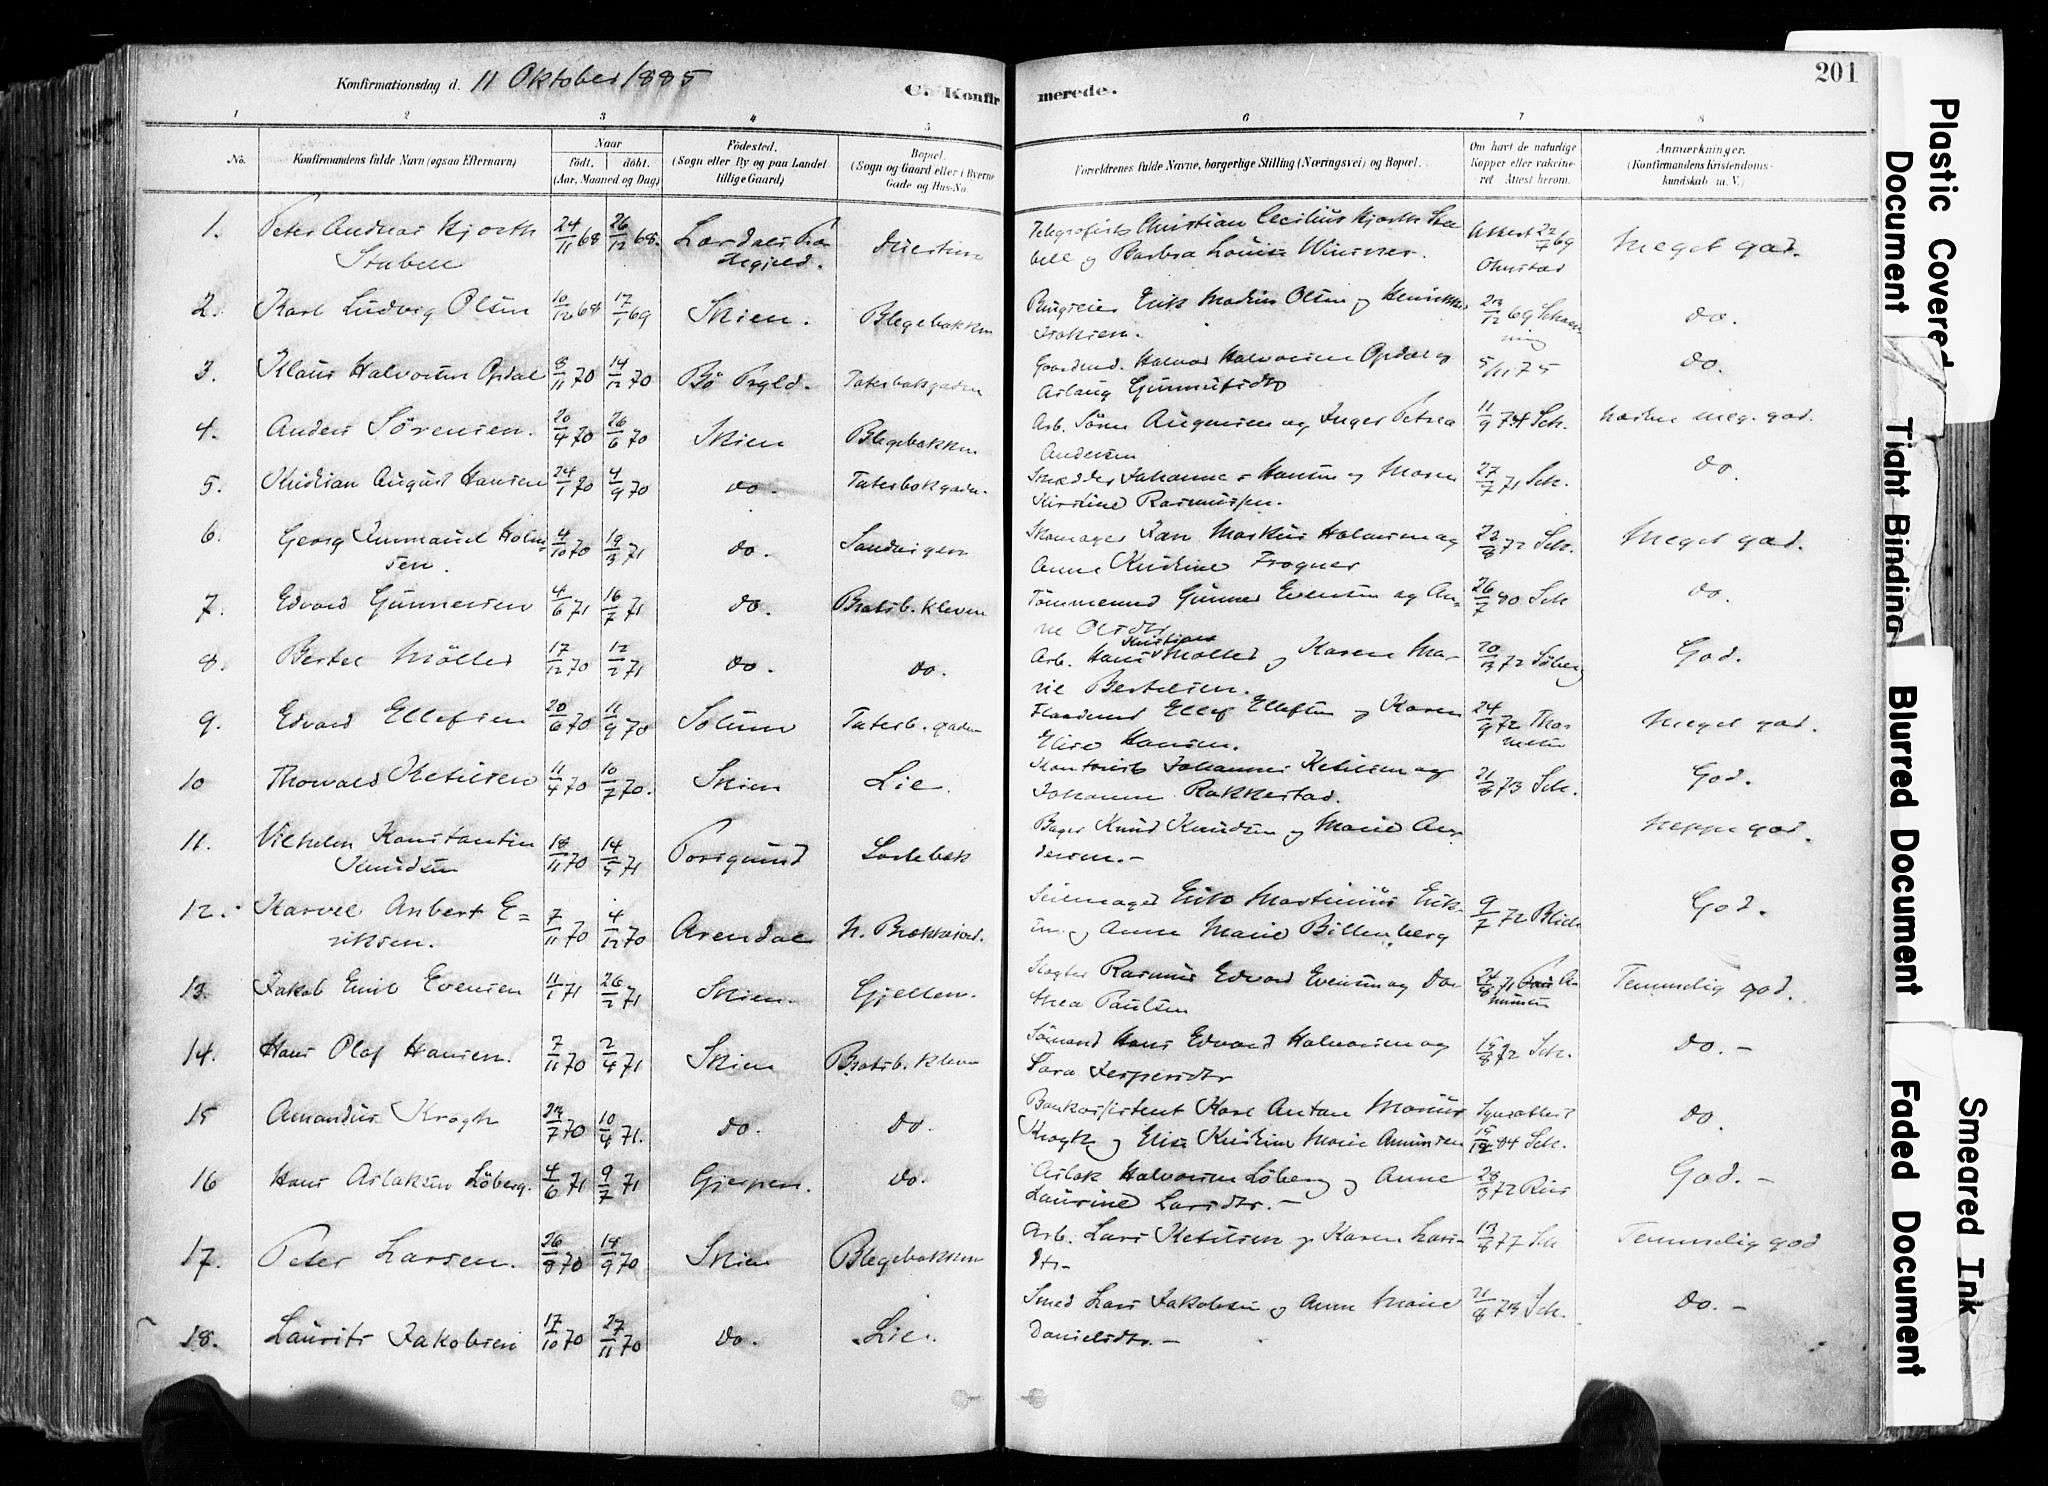 Konfirmationsdag d. 11 Oktober 1885
C. Konfirmerede.
201
1 2 3 4 5 6 7 8
No.
Konfirmandens fulde Navn (ogsaa Efternavn)
Naar
födt. döbt.
(Aar, Maaned og Dag)
Födested.
(Sogn eller By og paa Landet tillige Gaard)
Bopæl.
(Sogn og Gaard eller i Byerne Gade og Hus-No.
Forældrenes fulde Navne, borgerlige Stilling (Næringsvei) og Bopæl.
Om havt de naturlige Kopper eller vaccineret. Attest herom.
Anmærkninger.
(Konfirmandens Kristendomskundskab m. V.)
1. Peter Andreas Hjorth Stabell 24/11 68 26/12 68. Lardals Præstegjeld. Telegrafist Christian Cecilius Hjorth Stabell og Barbra Louise Attest 22/7 69 Meget god.
2. Karl Ludvig Olsen 10/12 68 17/1 69 Skien. Blegebakken Erik Olsen og Isaksen. 69 do.
3. Klaus Halvorsen Opdal 8/11 70 14/12 70 Bö Prgld. Taterbakgaden Gaardmd. Halvor Halvorsen Opdal og Aslaug 5/11 75 do.
4. Anders Sörensen. 20/4 70 26/6 70 Skien Blegebakken Arb. Sören og Inger Petrea Andersen 11/9 74 Sch. næsten meg. god.
5. Kristian August Hansen 24/1 70 4/9 70 do. Taterbakgaden. Hansen og Maren Kirstine Rasmussen. 27/7 71 Sch. do.
6. Georg Immanuel Holmsen. 4/10 70 19/3 71 do. Skomager Jan Markus og Anne Kristine Frogner 72 Sch. Meget god.
7. Edvard Gunnersen 4/6 71 16/7 71 do. Bratsb. kleven Tömmermd Gunner Evensen og Anne Olsdtr 26/7 80 Sch do.
8. Bertel Möller 17/12 70 12/2 71 do. do. Arb. Hans Kristian Möller og Karen Marie Bertelsen. 20/3 72 Söberg God.
9. Edvard Ellefsen 20/6 70 11/9 70 Solum Taterb. gaden Ellef Ellefsen og Karen Elise Hansen. 24/9 72 Meget god.
10 Thorvald Ketilsen 11/4 70 10/7 70. Skien Lie. Johannes Ketilsen og Johanne Rakkestad. 21/8 73 Sch. God.
11. Vilhelm Konstantin Knudsen 18/11 70 14/5 71 Porsgrund Bager Knud Knudsen og Marie Andersen. - Neppe god.
12. Karvel Anbert Eriksen. 7/11 70 4/12 70 Arendal Seilmager Erik Martinius Eriksen og Anne Marie Billenberg 9/7 72 God.
13. Jakob Emil Evensen 11/1 71 26/2 71 Skien. Gjellen. Slagter Rasmus Edvard Evensen og Dorthea Paulsen 24/8 71 Temmelig god.
14. Hans Olaf Hansen. 7/11 70 2/4 71 Skien Bratsb. kleven Sömand Hans Edvard Halvorsen og Sara Jespersdtr 15/8 72 Sch. do. -
15 Amandus Krogh 70 10/4 71. do. do. Bankassistent Karl Anton Marius Krogh og Elise Kristine Marie Amundsen 84 Sch. do.
16 Hans Aslaksen Löberg. 4/6 71 9/7 71 Gjerpen. do. Aslak Halvorsen Löberg og Anne Laurine Larsdtr. - 28/3 72 God. -
17. Peter Larsen. 26/8 70 18/9 70 Skien Blegebakken Arb. Lars Ketilsen og Karen Larsdtr 77 Sch Temmelig god
18. Laurits Jakobsen 17/10 70 27/11 70 do. Lie. Smed Lars Jakobsen og Anne Marie Danielsdtr. - 21/8 73 Sch. do. -
Plastic Covered Document
Tight Binding
Blurred Document
Faded Document
Smeared Ink